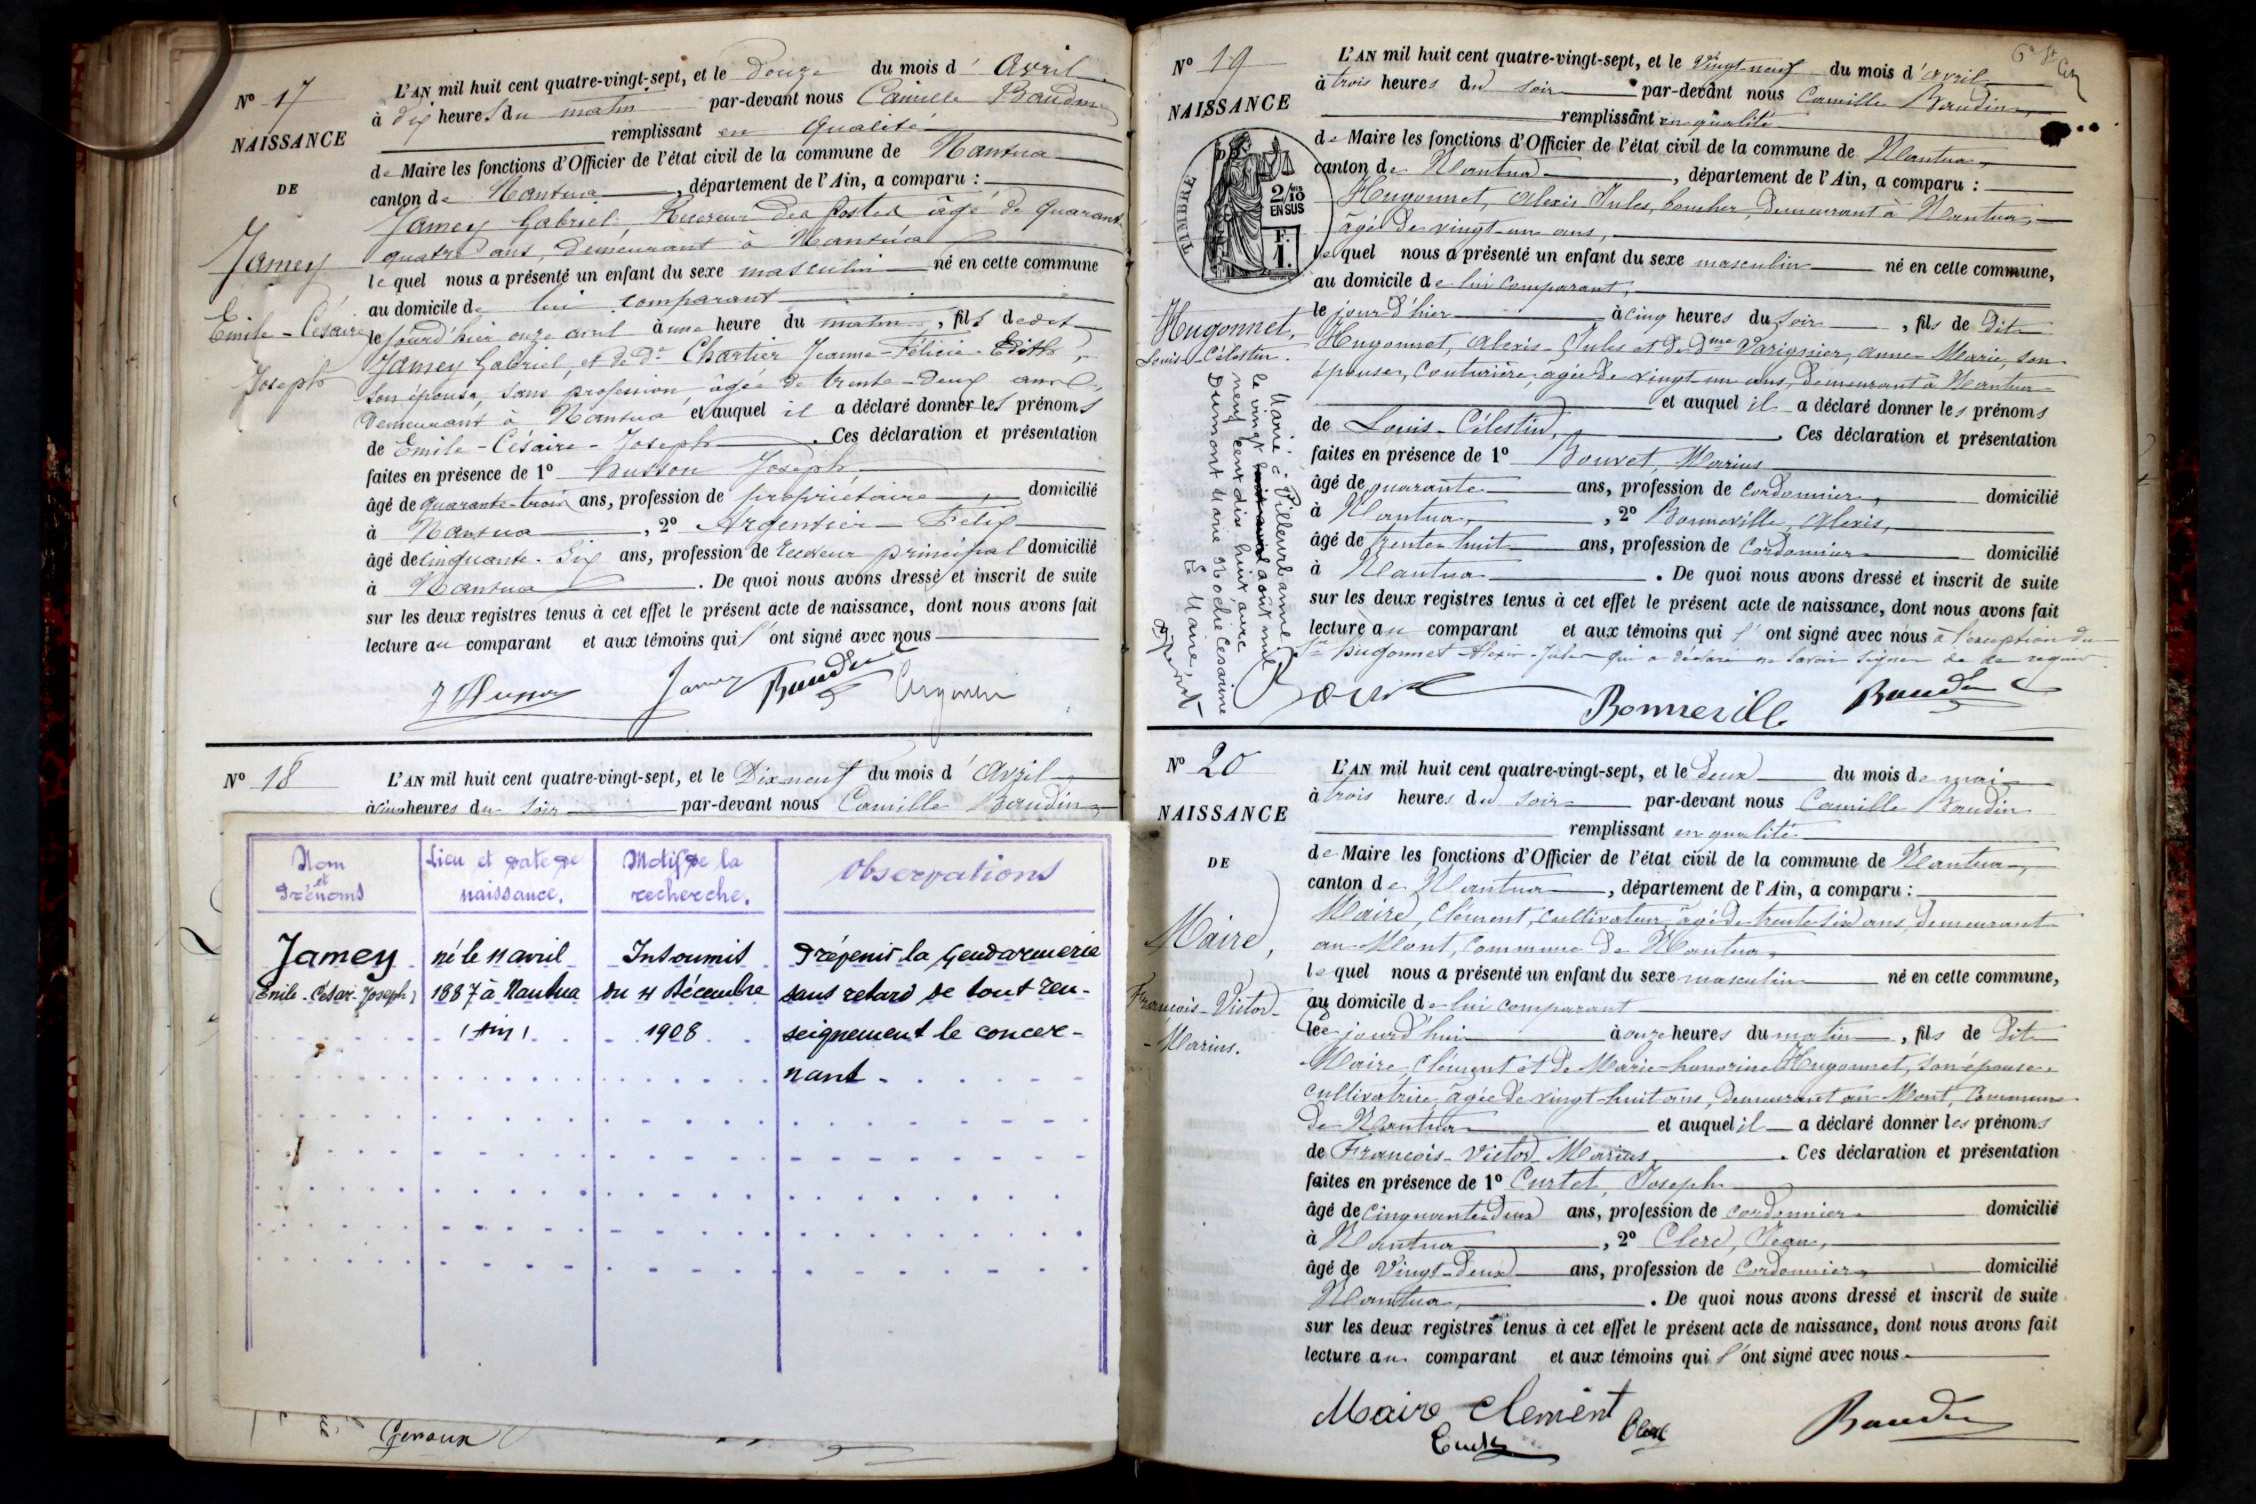 Nº 17
NAISSANCE
DE
Jamey
Emile-Césaire
Joseph
L'AN mil huit cent quatre-vingt-sept, et le Douze du mois d'Avril
à dix heures du matin par-devant nous Camille Baudin
remplissant en qualité
de Maire les fonctions d'Officier de l'état civil de la commune de Nantua
canton de Nantua, département de l'Ain, a comparu :
Jamey Gabriel Receveur des Postes âgé de quarante
quatre ans, demeurant à Nantua
lequel nous a présenté un enfant du sexe masculin né en cette commune
au domicile de lui comparant
le jourd'hier onze avril à une heure du matin, fils dedit
Jamey Gabriel, et de De Chartier Jeanne-Félicie-Edith,
son épouse, sans profession âgée de trente-deux ans,
demeurant à Nantua et auquel il a déclaré donner les prénoms
de Emile-Césaire-Joseph. Ces déclaration et présentation
faites en présence de 1º Husson Joseph,
âgé de quarante-trois ans, profession de propriétaire, domicilié
à Nantua, 2º Argentier Félix
âgé de cinquante-six ans, profession de receveur principal domicilié
à Nantua. De quoi nous avons dressé et inscrit de suite
sur les deux registres tenus à cet effet le présent acte de naissance, dont nous avons fait
lecture au comparant et aux témoins qui l'ont signé avec nous
JHusson Jamey Baudin Argentier
Nº 18
L'AN mil huit cent quatre-vingt-sept, et le Dix neuf du mois d'Avril
à cinq heures du soir par-devant nous Camille Baudin
Nom et Prénoms
Lieu et date de naissance.
Motif de la recherche.
Observations
Jamey
(Emile-César-Joseph)
né le 11 avril
1887 à Nantua
(Ain)
Insoumis
du 4 Décembre
1908
Prévenir la Gendarmerie
sans retard de tout ren-
seignement le concer-
nant.
Geroux
6e St Cty
Nº 19
NAISSANCE
TIMBRE
2/10 EN SUS
F. 1.
Hugonnet,
Louis-Célestin.
Marié à Villeurbanne
le vingt août mil
neuf cent dix huit avec
Dumont Marie Noélie Césarine
Le Maire,
L'AN mil huit cent quatre-vingt-sept, et le vingt-neuf du mois d'avril
à trois heures du soir par-devant nous Camille Baudin,
remplissant en qualité
de Maire les fonctions d'Officier de l'état civil de la commune de Nantua,
canton de Nantua, département de l'Ain, a comparu :
Hugonnet, Alexis Jules, boucher, demeurant à Nantua,
âgé de vingt-un ans,
lequel nous a présenté un enfant du sexe masculin né en cette commune,
au domicile de lui comparant,
le jour d'hier à cinq heures du soir, fils de dit
Hugonnet, Alexis-Jules et de dme Varignier, Anne-Marie, son
épouse, couturière, agée de vingt un ans, demeurant à Nantua
et auquel il a déclaré donner les prénoms
de Louis-Célestin. Ces déclaration et présentation
faites en présence de 1º Bouvet, Marius
âgé de quarante ans, profession de cordonnier, domicilié
à Nantua, 2º Bonneville, Alexis,
âgé de trente-huit ans, profession de cordonnier domicilié
à Nantua. De quoi nous avons dressé et inscrit de suite
sur les deux registres tenus à cet effet le présent acte de naissance, dont nous avons fait
lecture au comparant et aux témoins qui l'ont signé avec nous à l'exception du
sr Hugonnet Alexis-Jules qui a déclaré ne savoir signer de ce requis.
Bouvet Bonneville Baudin
Nº 20
NAISSANCE
DE
Maire,
François-Victor-
-Marius.
L'AN mil huit cent quatre-vingt-sept, et le deux du mois de mai
à trois heures du soir par-devant nous Camille Baudin
remplissant en qualité
de Maire les fonctions d'Officier de l'état civil de la commune de Nantua,
canton de Nantua, département de l'Ain, a comparu :
Maire, Clément, cultivateur, âgé de trente six ans, demeurant
au Mont, commune de Nantua,
lequel nous a présenté un enfant du sexe masculin né en cette commune,
au domicile de lui comparant
le ce jourd'hui à onze heures du matin, fils de dit
Maire, Clément et de Marie-honorine Hugonnet, son épouse,
cultivatrice, âgée de vingt-huit ans, demeurant au Mont, commune
de Nantua et auquel il a déclaré donner les prénoms
de François-Victor-Marius. Ces déclaration et présentation
faites en présence de 1º Curtet, Joseph
âgé de cinquante-deux ans, profession de cordonnier domicilié
à Nantua, 2º Clerc, Jean,
âgé de vingt-deux ans, profession de cordonnier, domicilié
Nantua. De quoi nous avons dressé et inscrit de suite
sur les deux registres tenus à cet effet le présent acte de naissance, dont nous avons fait
lecture au comparant et aux témoins qui l'ont signé avec nous
Maire Clement Curtet Clerc Baudin